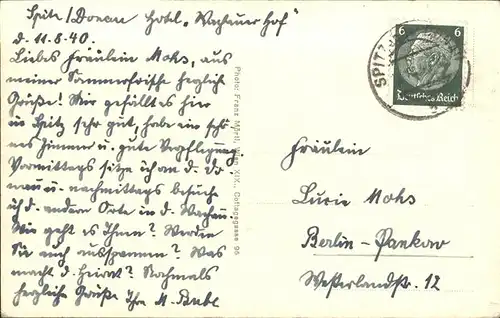 Spitz/Donau Hotel „Wachauer Hof"
d. 11.8.40.
Liebes Fräulein Mohs, aus
meiner Sommerfrische herzliche
Grüße! Mir gefällt es hier
in Spitz sehr gut, habe ein schö
nes Zimmer u. gute Verpflegung.
Vormittags sitze ich an d. Do
nau u. nachmittags besuche
ich d. andern Orte in d. Wachau.
Wie geht es Ihnen? Werden
Sie auch ausspannen? Was
macht d. Heirat? Nochmals
herzliche Grüße Ihre M.
Photo: Franz Mörtl, Wien, XIX., Cottagegasse 96
SPITZ
6 6
Deutsches Reich
Fräulein
Lucie Mohs
Berlin-Pankow
Westerlandstr. 12